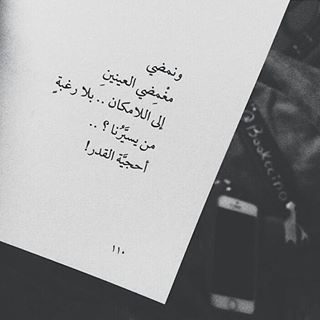 ونمضي
مغْمِضي العينينِ
إلى اللامكان .. بلا رغبةٍ
من يسيّرُنا ؟ ..
أحجيَّة القدر!
١١٠
@Bookccino